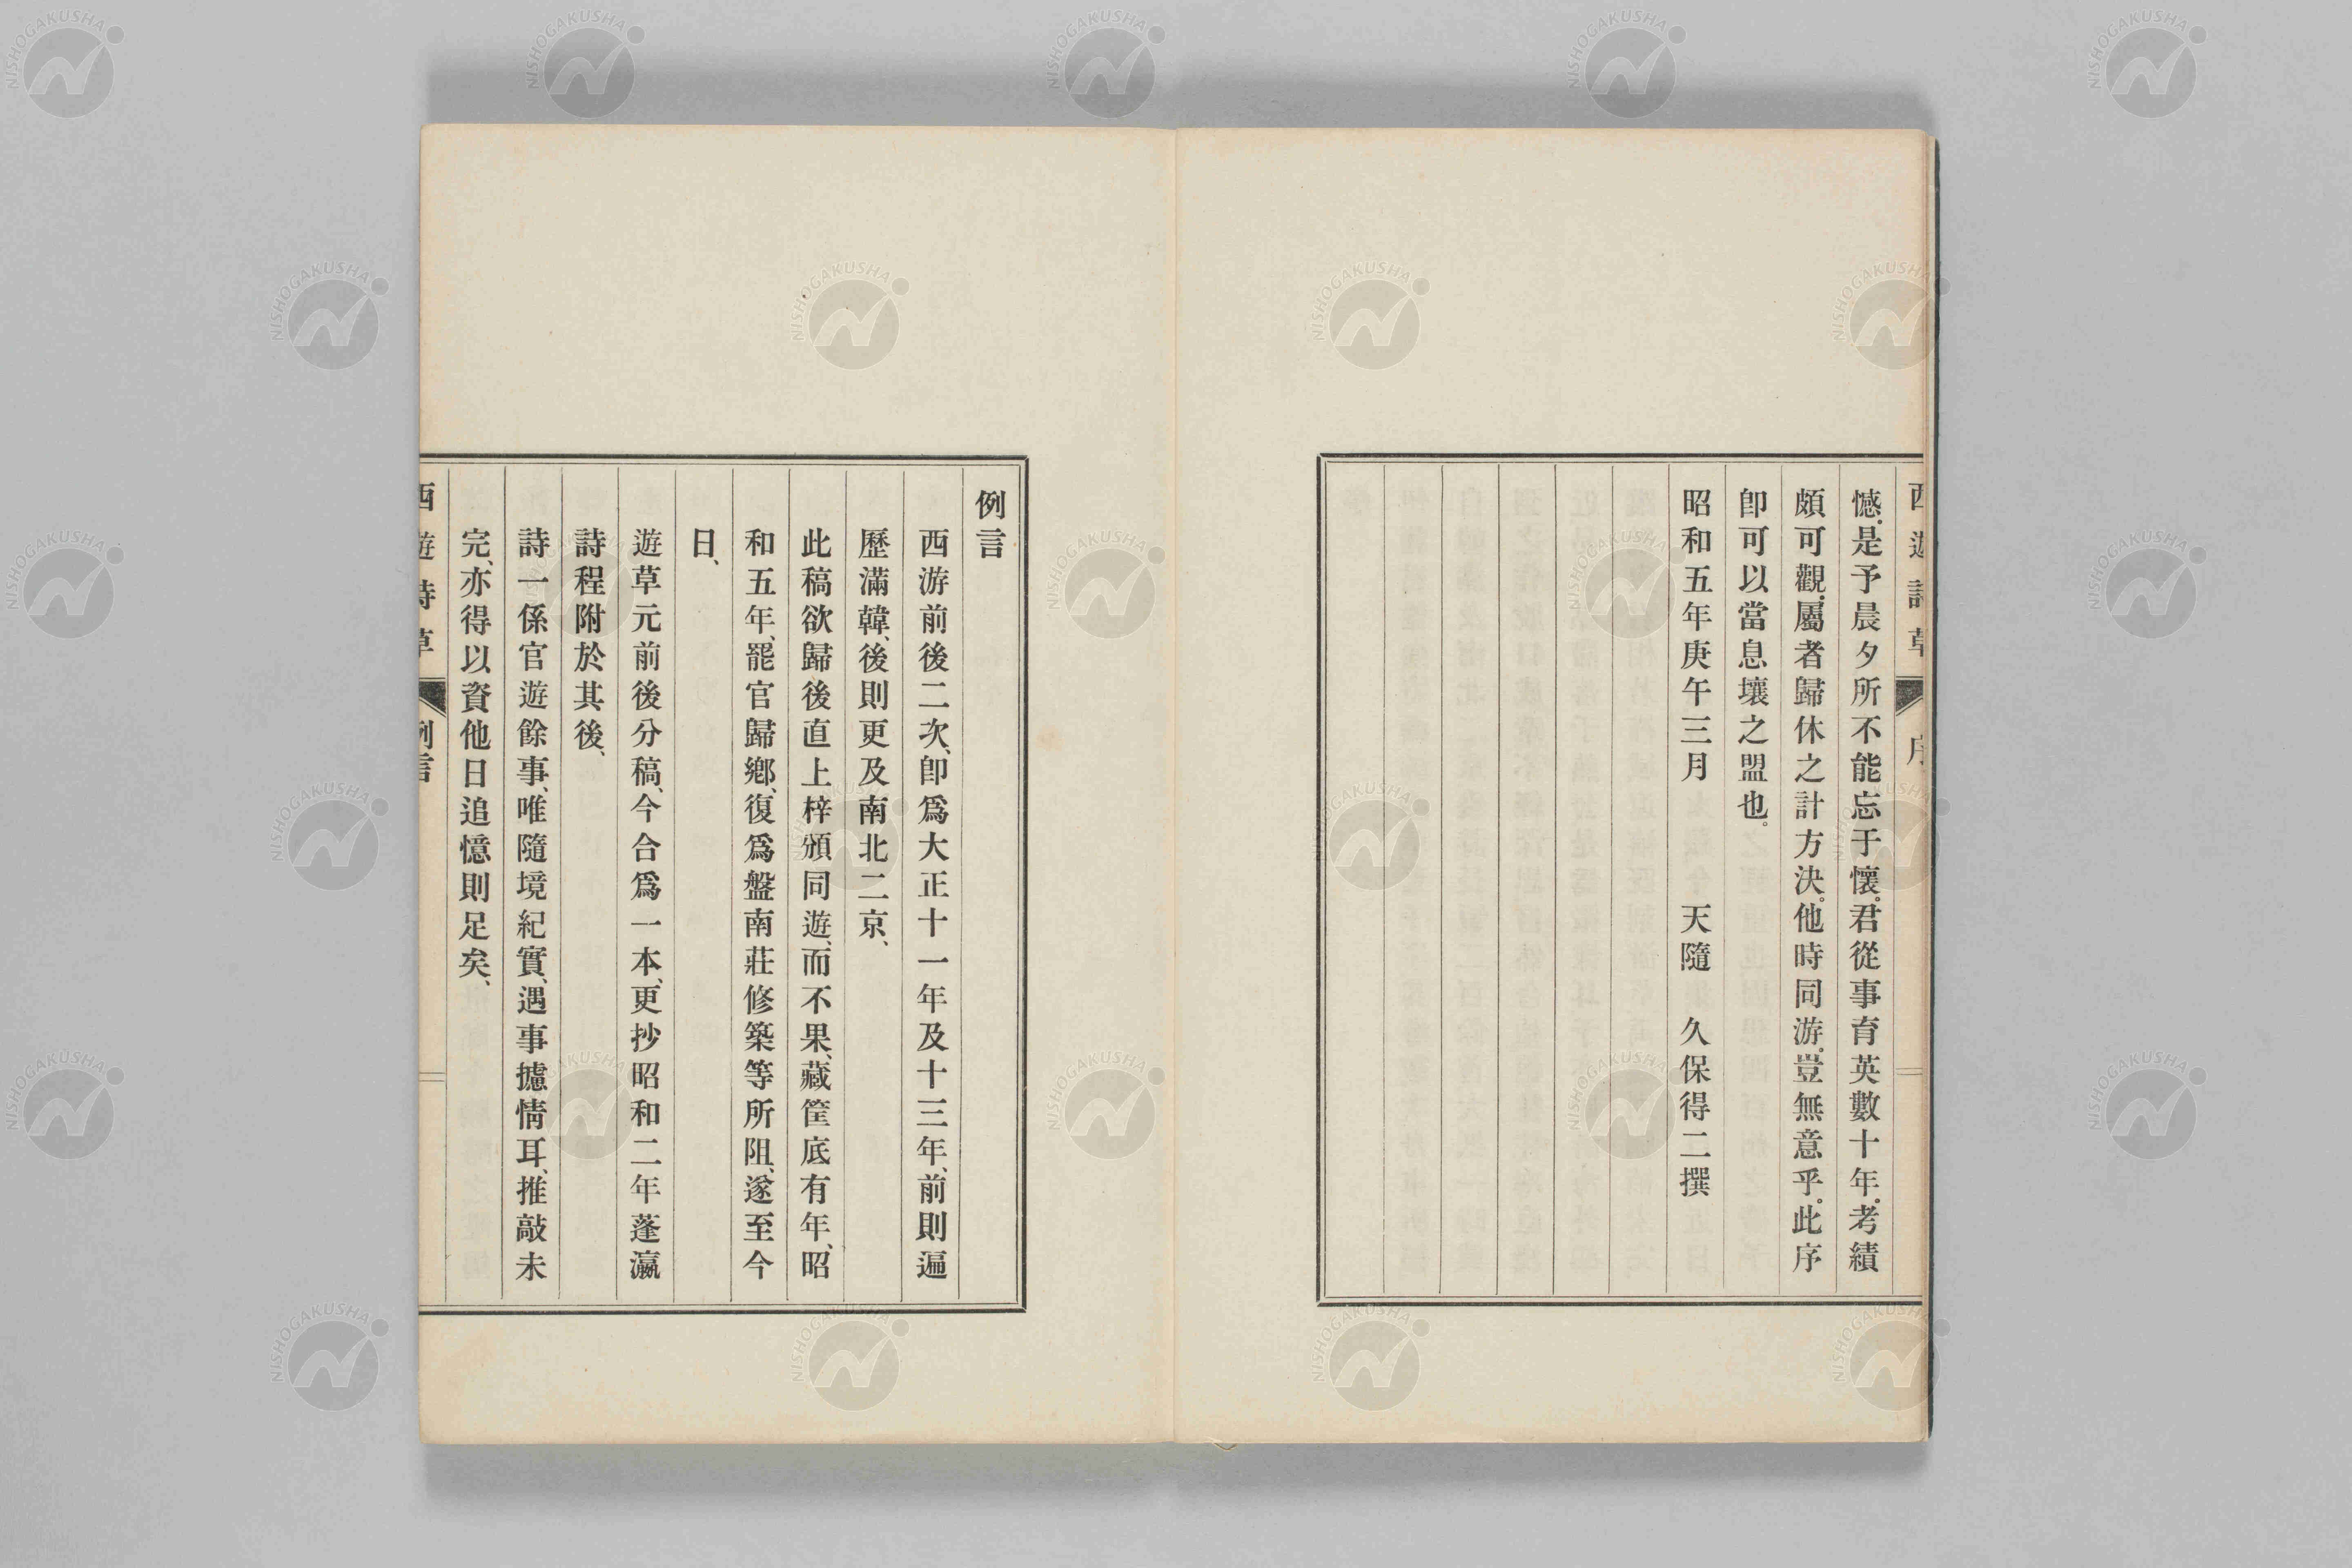 西遊詩草 序
憾。是予晨夕所不能忘于懷。君從事育英數十年。考績
頗可觀。屬者歸休之計方決。他時同游。豈無意乎。此序
卽可以當息壤之盟也。
昭和五年庚午三月　　　天隨　久保得二撰
例言
西游前後二次、卽爲大正十一年及十三年、前則遍
歷滿韓、後則更及南北二京、
此稿欲歸後直上梓頒同遊、而不果、藏筐底有年、昭
和五年、罷官歸鄕、復爲盤南莊修築等所阻、遂至今
日、
遊草元前後分稿、今合爲一本、更抄昭和二年蓬瀛
詩程附於其後、
詩一係官遊餘事、唯隨境紀實、遇事攄情耳、推敲未
完、亦得以資他日追憶則足矣、
西遊詩草 例言
NISHOGAKUSHA